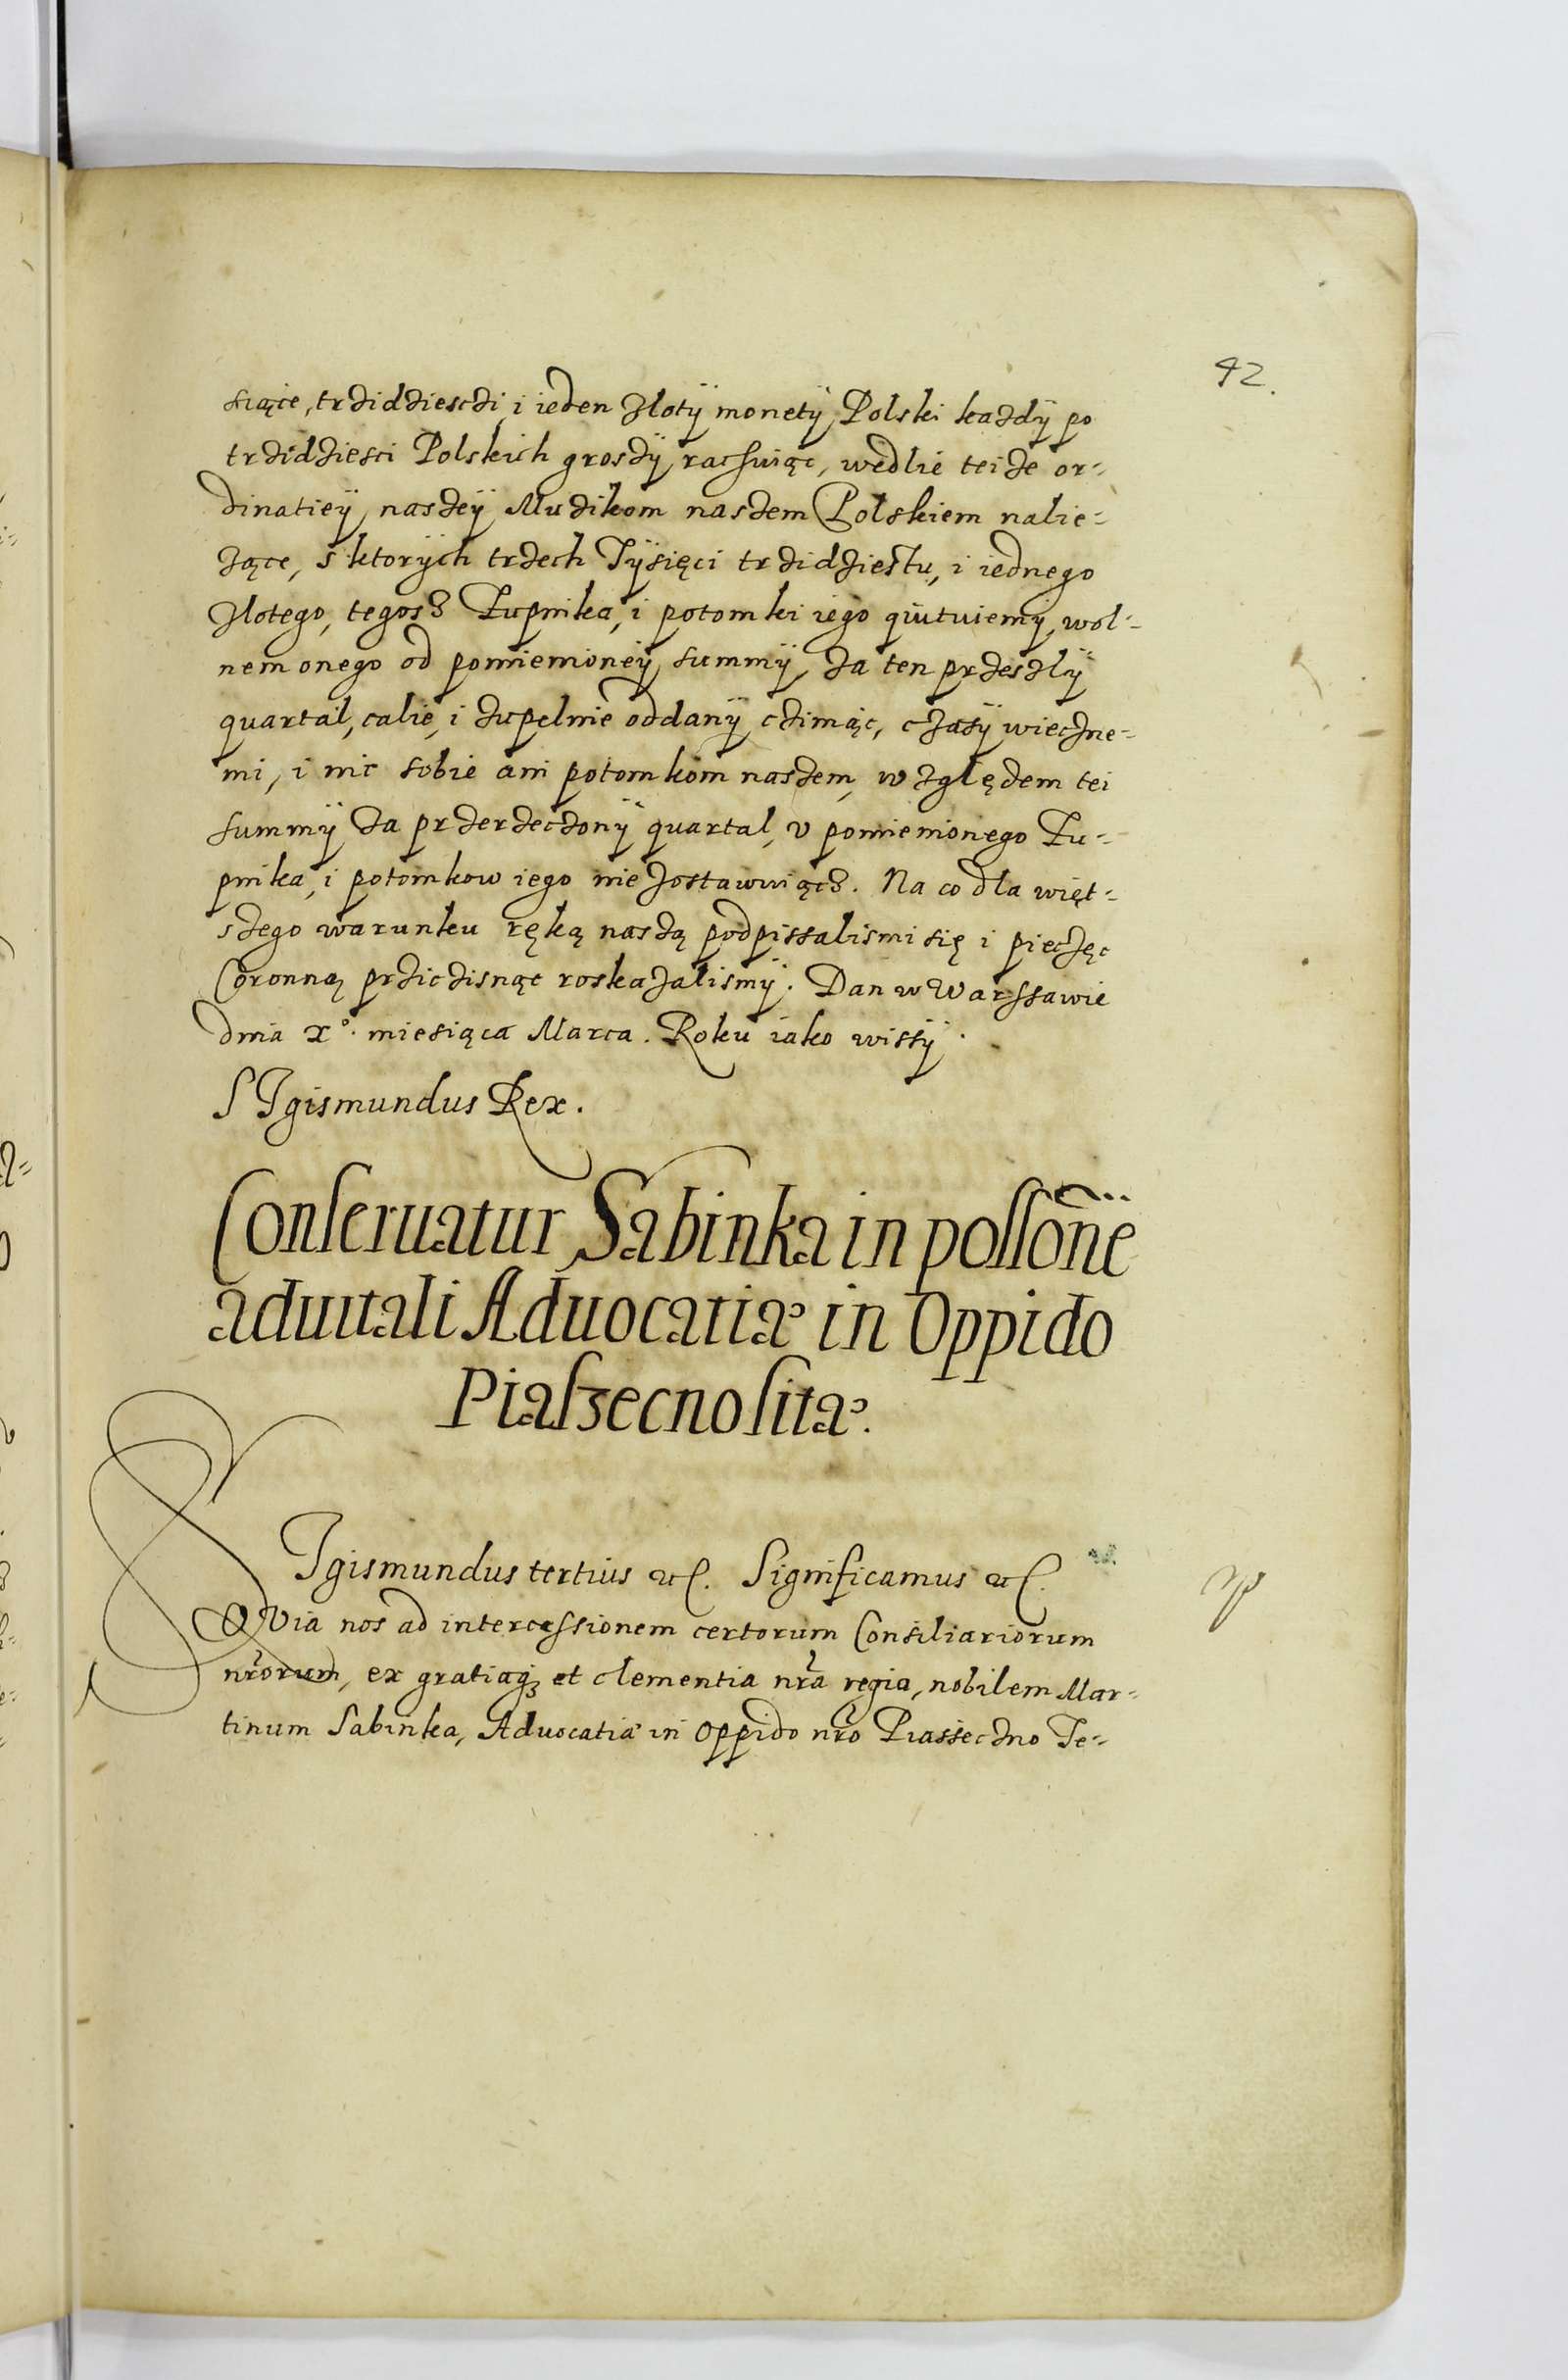 42.
siące, trzidziesczi, i ieden złotÿ monetÿ Polski każdÿ po
trzidziesci Polskich groszÿ rachuiąc, wedlie teize or=
dinatieÿ naszeÿ Muzikom naszem Polskiem nalie=
żące, s ktorÿch trzech Tÿsięci trzidziestu, i iednego
złotego, tegosz Żupnika, i potomki iego quituiemÿ, wol=
nem onego od pomienioneÿ summÿ za ten przeszlÿ
quartal, calie, i zupelnie oddanÿ czimąc, czasÿ wieczne=
mi, i nic sobie ani potomkom naszem, względem tei
summÿ za przerzeczonÿ quartal, v pomienionego Żu=
pnika, i potomkow iego nie zostawuiącz. Na co dla więt=
szego warunku ręką naszą podpissalismi się i pieczęc
Coronną przicisnąc roskazalismÿ. Dan w Warssawie
dnia x°. miesiąca Marca. Roku iako wissÿ.
SIgismundus Rex.
Conseruatur Sabinka in possōne
aduitali Aduocatiæ in Oppido
Piaszecno sitæ.
SIgismundus tertius etc. Significamus etc.
QVia nos ad intercessionem certorum Consiliariorum
nr̃orum, ex gratiaq; et clementia nr̃a regia, nobilem Mar=
tinum Sabinka, Aduocatiæ in oppido nr̃o Piasseczno Te=